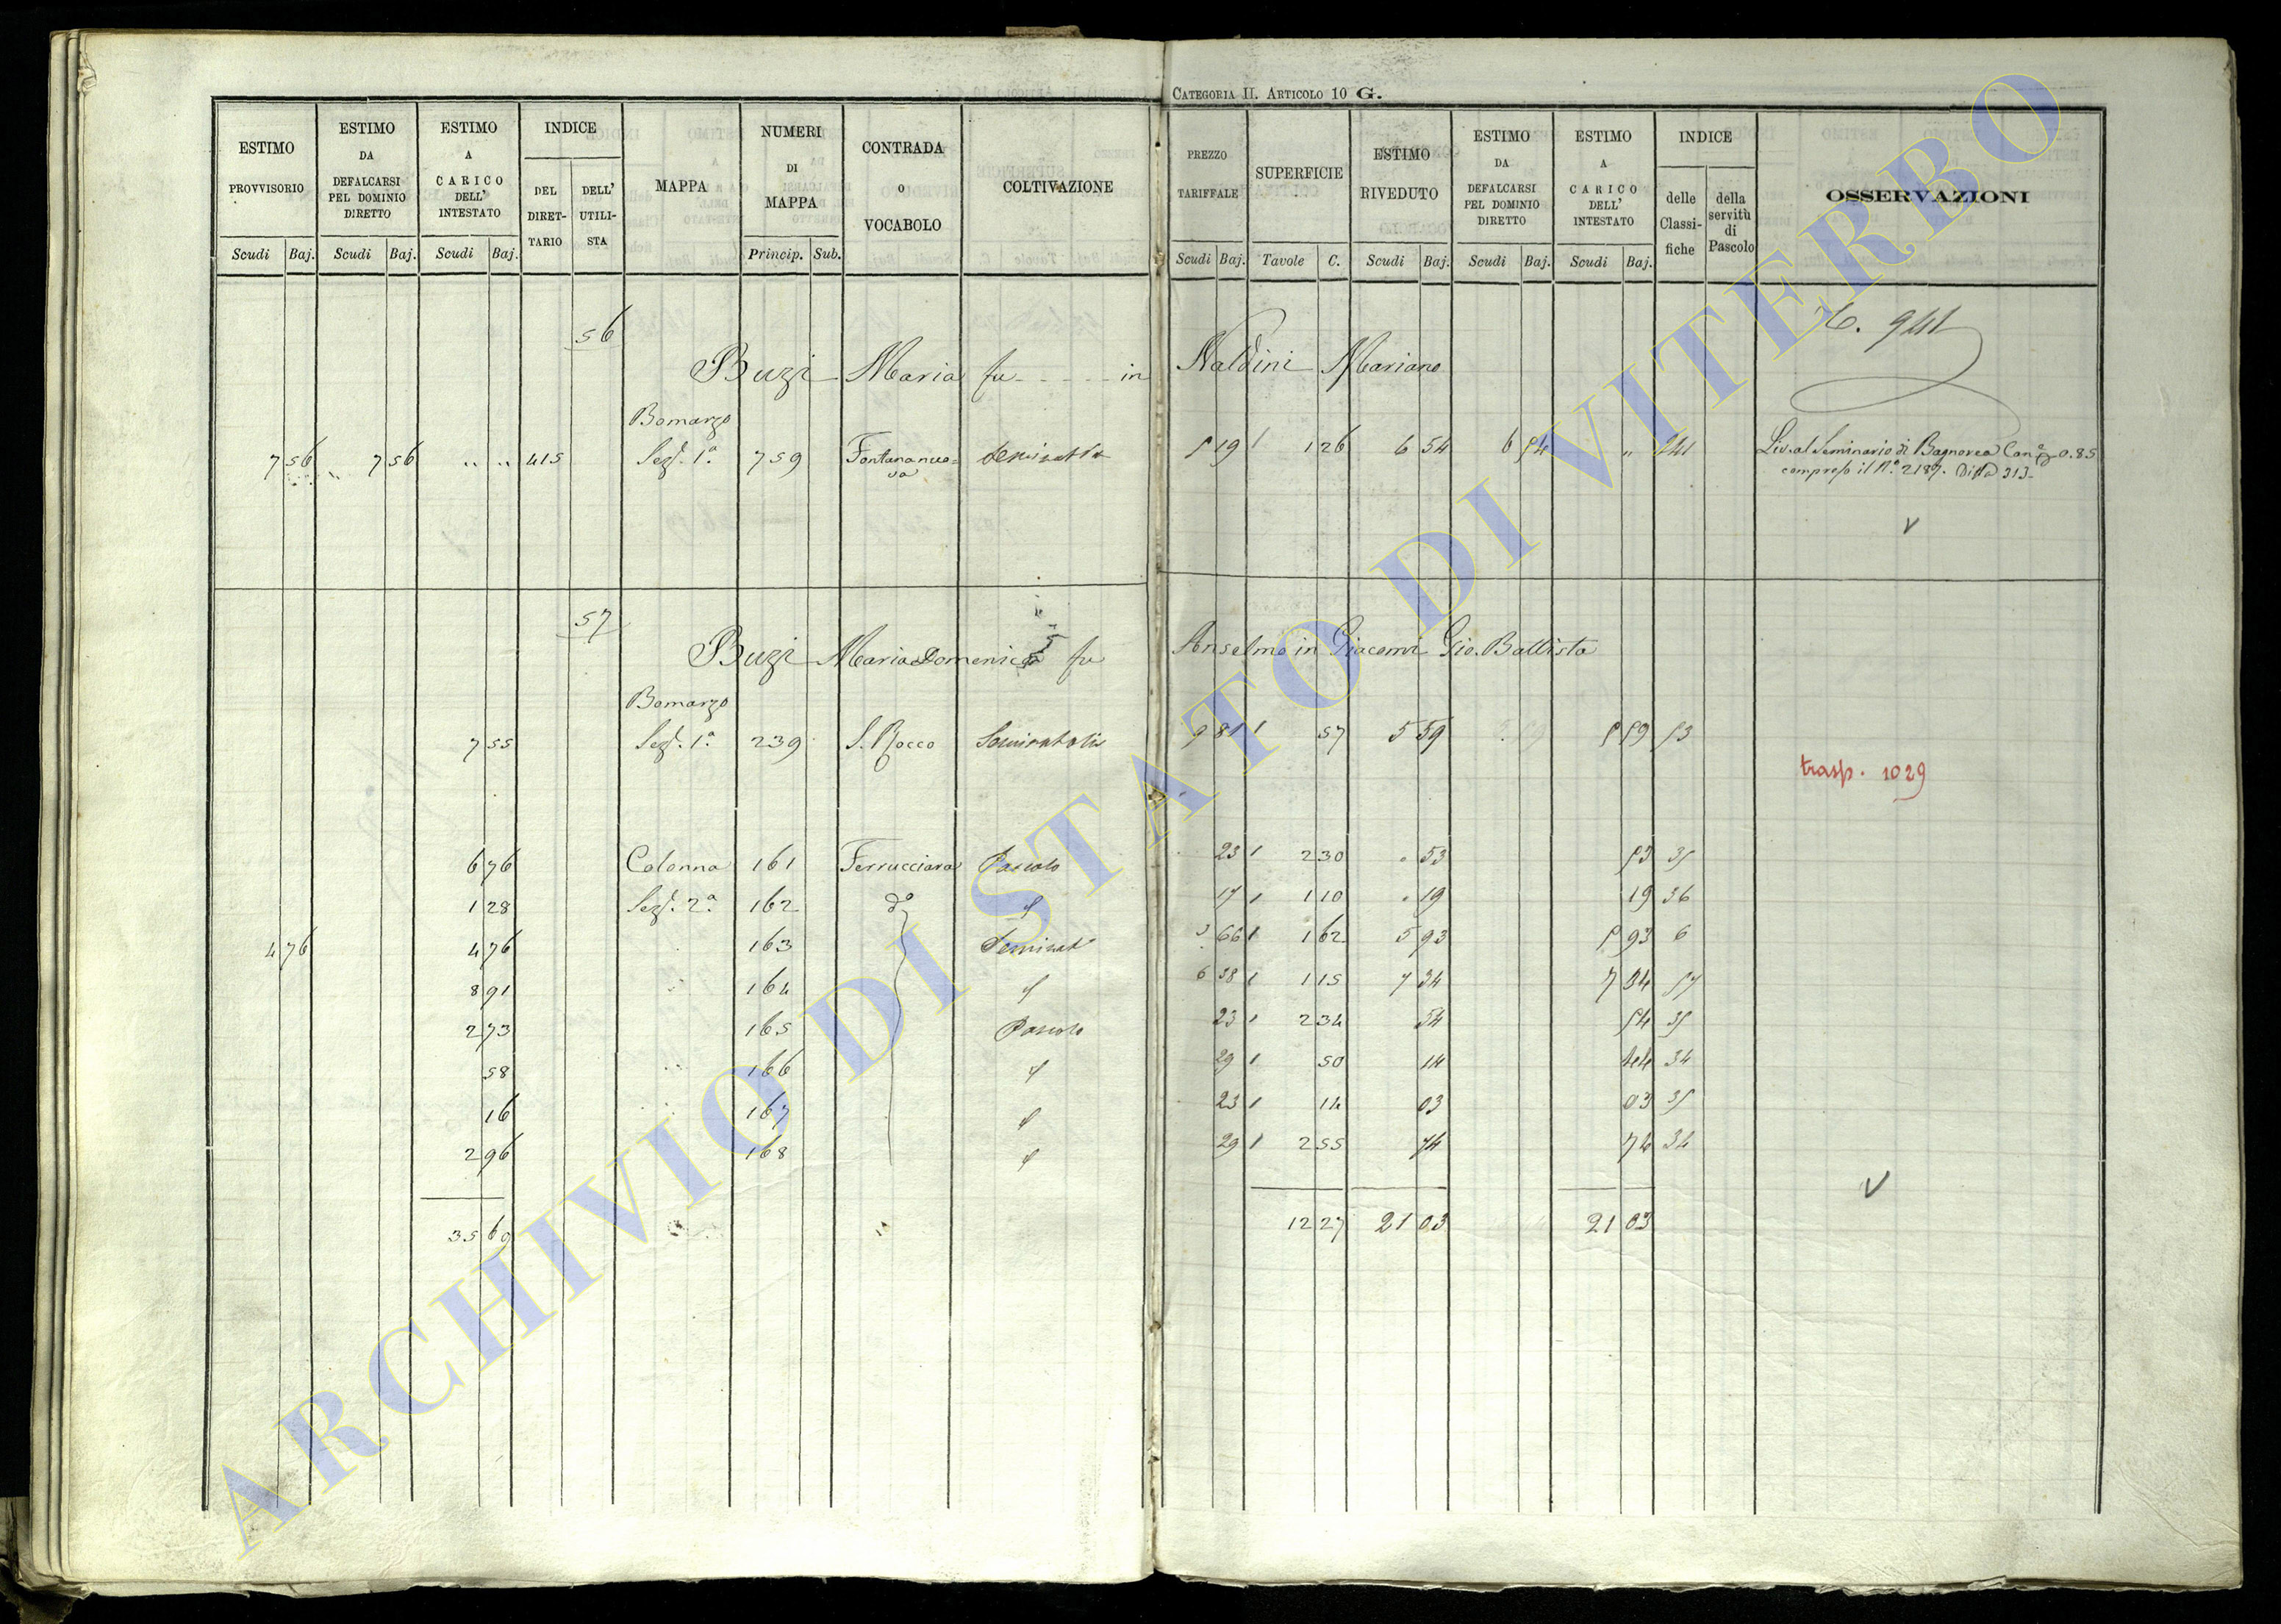 CATEGORIA II. ARTICOLO 10 G.
ESTIMO PROVVISORIO | ESTIMO DA DEFALCARSI PEL DOMINIO DIRETTO | ESTIMO A CARICO DELL' INTESTATO | INDICE | MAPPA | NUMERI DI MAPPA | CONTRADA O VOCABOLO | COLTIVAZIONE | PREZZO TARIFFALE | SUPERFICIE | ESTIMO RIVEDUTO | ESTIMO DA DEFALCARSI PEL DOMINIO DIRETTO | ESTIMO A CARICO DELL' INTESTATO | INDICE | OSSERVAZIONI
DEL DIRET-TARIO | DELL' UTILI-STA | delle Classi-fiche | della servitù di Pascolo
Scudi | Baj. | Scudi | Baj. | Scudi | Baj. | Princip. | Sub. | Scudi | Baj. | Tavole | C. | Scudi | Baj. | Scudi | Baj. | Scudi | Baj.
56
C. 941
Buzi Maria fu - - - - - in Naldini Mariano
Bomarzo
7 56 | 7 56 | " " | 415 | Sez. 1ª | 759 | Fontananuo= | Seminativo | 5 19 | 1 26 | 6 54 | 6 54 | " | 241 | Liv. al Seminario di Bagnorea Can. 0.85
va | compreso il N.° 2187. Ditta 313-
V
57
Buzi Maria Domenica fu Anselmo in Giacomi Gio. Battista
Bomarzo
7 55 | Sez. 1ª | 239 | S. Rocco | Seminativo | 9 81 | 57 | 5 59 | 5 59 | 53
trasp. 1029
6 76 | Colonna | 161 | Ferrucciara | Pascolo | 23 | 2 30 | 53 | 53 | 35
1 28 | Sez. 2ª | 162 | dº | 17 | 1 10 | 19 | 19 | 36
4 76 | 4 76 | 163 | Seminat | 3 66 | 1 62 | 5 93 | 5 93 | 6
8 91 | 164 | 6 38 | 1 15 | 7 34 | 7 34 | 57
2 73 | 165 | Pascolo | 23 | 2 34 | 54 | 54 | 35
58 | 166 | 29 | 50 | 14 | 14 | 34
16 | 167 | 23 | 14 | 03 | 03 | 35
2 96 | 168 | 29 | 2 55 | 74 | 74 | 34
V
35 69 | 12 27 | 21 03 | 21 03
ARCHIVIO DI STATO DI VITERBO